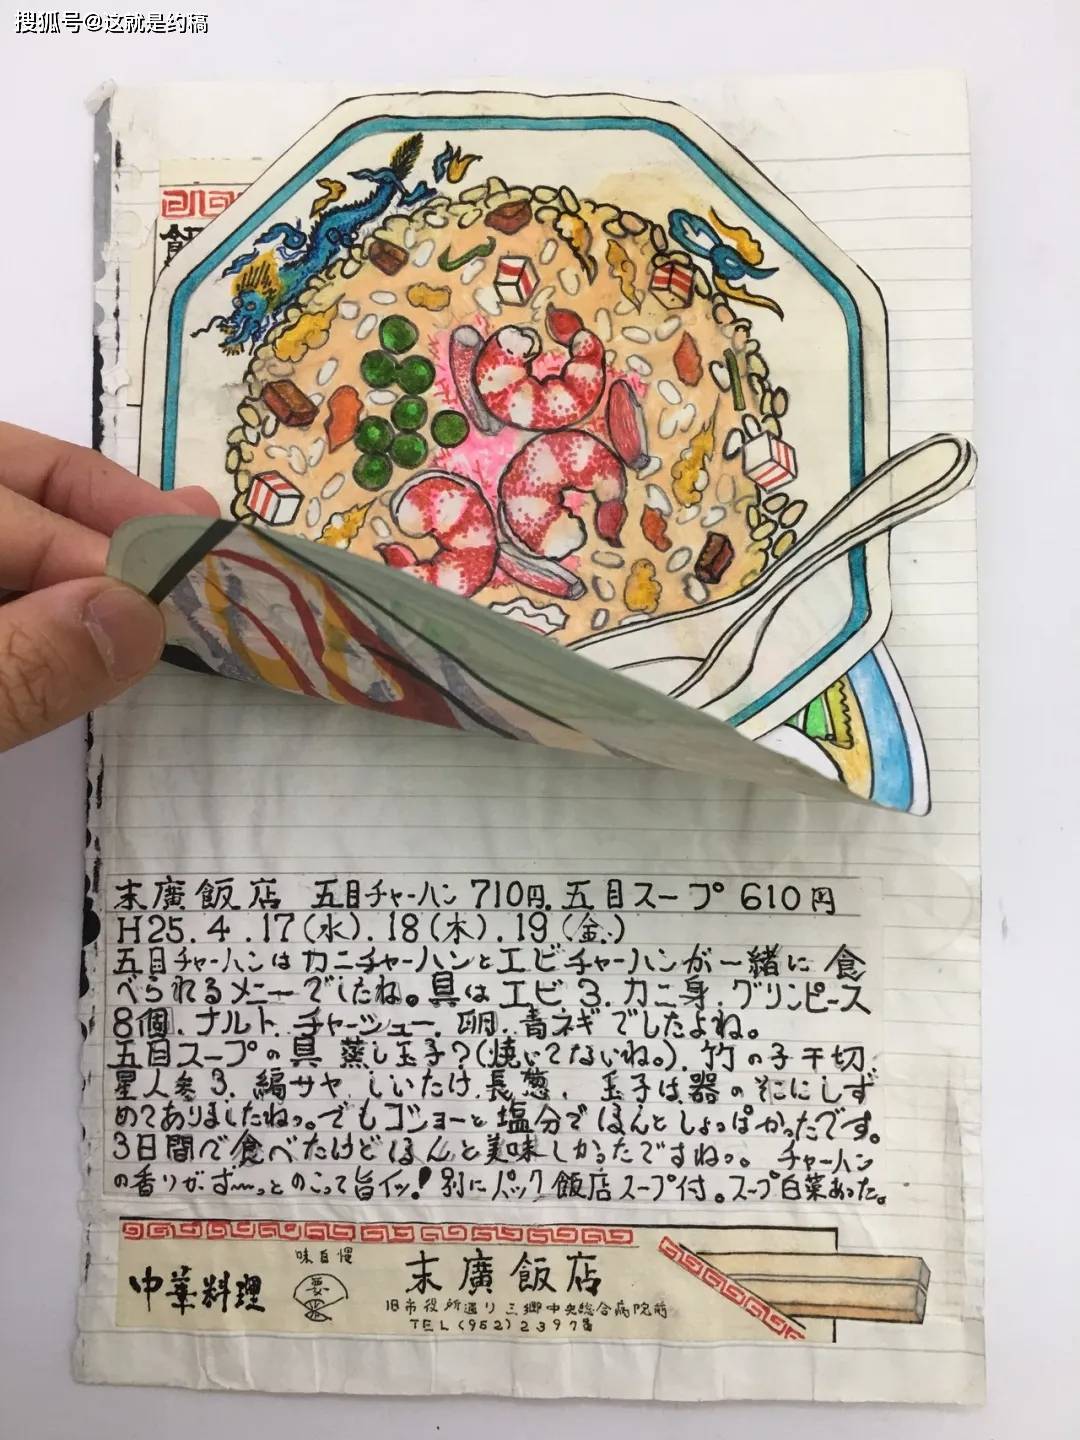 搜狐号@这就是约稿
飯
末廣飯店 五目チャーハン710円.五目スープ610円
H25.4.17(水).18(木).19(金.)
五目チャーハンはカニチャーハンとエビチャーハンが一緒に食
べられるメニーでしたね。具はエビ3.カニ身.グリンピース
8個.ナルト.チャーシュー.卵.青ネギでしたよね。
五目スープの具 蒸し玉子?(焼いてないね。).竹の子千切.
星人参3.絹サヤ.しいたけ.長葱. 玉子は器のそこにしず
めてありましたねっ。でもコショーと塩分でほんとしょっぱかったです。
3日間で食べたけどほんと美味しかったですねっ。チャーハン
の香りがず〜っとのこって旨イッ!別にパック飯店スープ付。スープ白菜あった。
味自慢
中華料理 末廣飯店
旧市役所通り三郷中央総合病院前
TEL(952)2397番